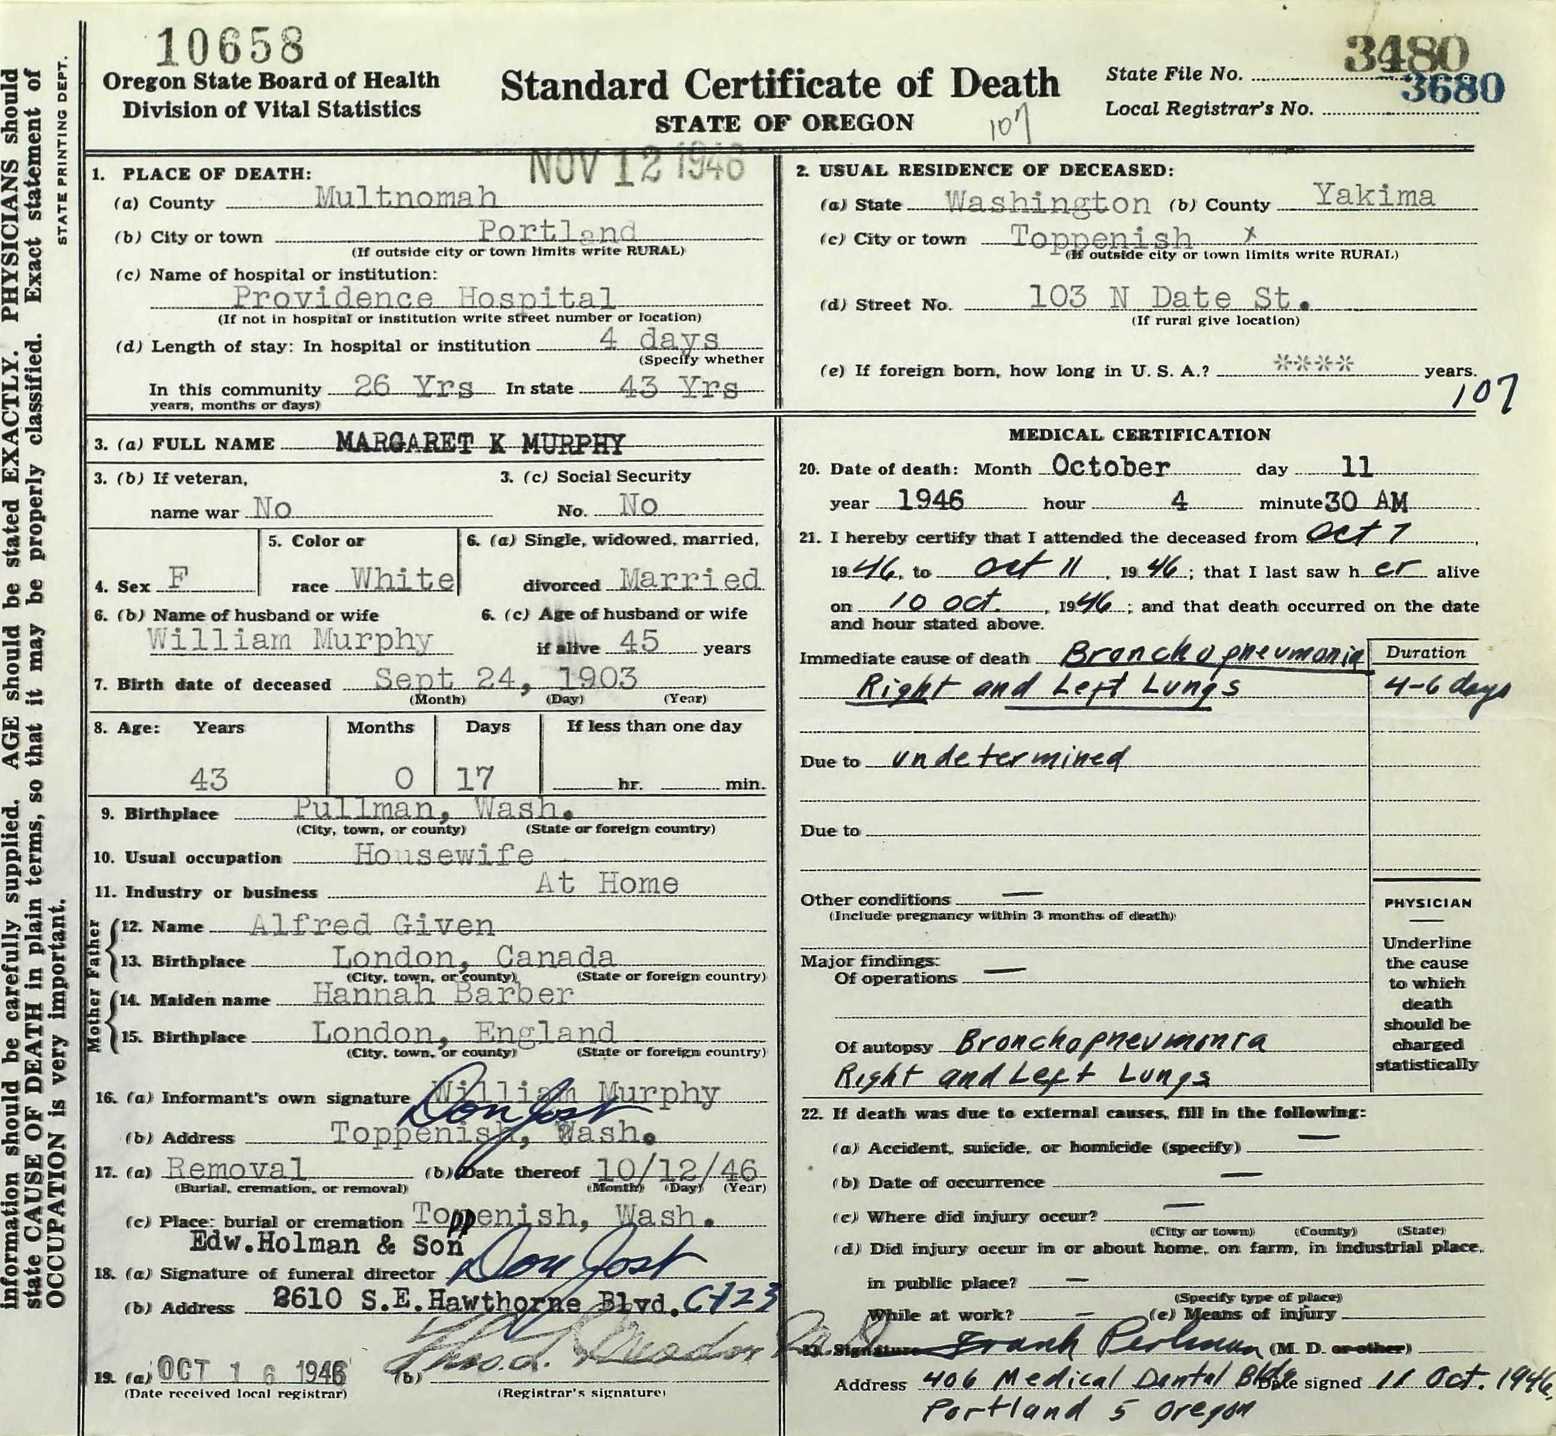 10658
3480
Oregon State Board of Health
Division of Vital Statistics
Standard Certificate of Death
STATE OF OREGON
107
State File No.
3680
Local Registrar's No.
NOV 12 1946
information should be carefully supplied. AGE should be stated EXACTLY. PHYSICIANS should
state CAUSE OF DEATH in plain terms, so that it may be properly classified. Exact statement of
OCCUPATION is very important.
STATE PRINTING DEPT.
1. PLACE OF DEATH:
(a) County Multnomah
(b) City or town Portland
(If outside city or town limits write RURAL)
(c) Name of hospital or institution:
Providence Hospital
(If not in hospital or institution write street number or location)
(d) Length of stay: In hospital or institution 4 days
(Specify whether
In this community 26 Yrs In state 43 Yrs
years, months or days)
2. USUAL RESIDENCE OF DECEASED:
(a) State Washington (b) County Yakima
(c) City or town Toppenish x
(If outside city or town limits write RURAL)
(d) Street No. 103 N Date St.
(If rural give location)
(e) If foreign born, how long in U. S. A.? **** years.
107
3. (a) FULL NAME MARGARET K MURPHY
3. (b) If veteran, 3. (c) Social Security
name war No No. No
4. Sex F 5. Color or race White 6. (a) Single, widowed, married, divorced Married
6. (b) Name of husband or wife 6. (c) Age of husband or wife
William Murphy if alive 45 years
7. Birth date of deceased Sept 24, 1903
(Month) (Day) (Year)
8. Age: Years Months Days If less than one day
43 0 17 hr. min.
9. Birthplace Pullman, Wash.
(City, town, or county) (State or foreign country)
10. Usual occupation Housewife
11. Industry or business At Home
Father
12. Name Alfred Given
13. Birthplace London, Canada
(City, town, or county) (State or foreign country)
Mother
14. Maiden name Hannah Barber
15. Birthplace London, England
(City, town, or county) (State or foreign country)
16. (a) Informant's own signature William Murphy
Don Jost
(b) Address Toppenish, Wash.
17. (a) Removal (b) Date thereof 10/12/46
(Burial, cremation, or removal) (Month) (Day) (Year)
(c) Place: burial or cremation Toppenish, Wash.
Edw. Holman & Son
18. (a) Signature of funeral director Don Jost
(b) Address 2610 S.E. Hawthorne Blvd. C723
19. (a) OCT 16 1946 (b)
(Date received local registrar) (Registrar's signature)
MEDICAL CERTIFICATION
20. Date of death: Month October day 11
year 1946 hour 4 minute 30 AM
21. I hereby certify that I attended the deceased from Oct 7,
1946, to Oct 11, 1946; that I last saw h er alive
on 10 Oct., 1946; and that death occurred on the date
and hour stated above.
Immediate cause of death Bronchopneumonia Duration
Right and Left Lungs 4-6 days
Due to undetermined
Due to
Other conditions —
(Include pregnancy within 3 months of death)
Major findings:
Of operations —
Of autopsy Bronchopneumonia
Right and Left Lungs
PHYSICIAN
Underline
the cause
to which
death
should be
charged
statistically
22. If death was due to external causes, fill in the following:
(a) Accident, suicide, or homicide (specify) —
(b) Date of occurrence —
(c) Where did injury occur? —
(City or town) (County) (State)
(d) Did injury occur in or about home, on farm, in industrial place,
in public place? —
(Specify type of place)
While at work? — (e) Means of injury
23. Signature Frank Perlman (M. D. or other)
Address 406 Medical Dental Bldg Date signed 11 Oct. 1946,
Portland 5 Oregon